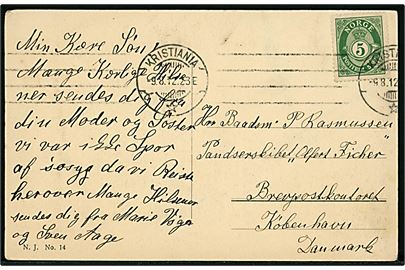 Min Kære Søn
Mange Kærlige Hilse
ner sendes dig fra
din Moder og Søster
vi var ikke Spor
af søsyg da vi Reiste
herover Mange Hilsner
sendes dig fra Marie Viger
og Sven Aage
N. J. No. 14
KRISTIANIA
9.8.12.23E
NORGE
5
KRISTIANIA
-9.8.12
Hr. Baadsm. P. Rasmussen
Panserskibet „Olfert Ficher"
Brevpostkontoret
København
Danmark